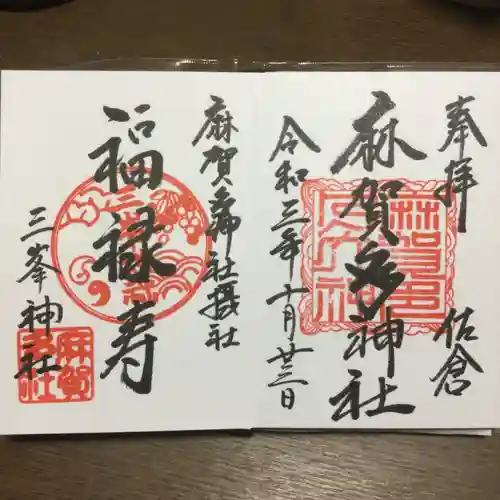 奉拝
佐倉
麻賀多神社
令和三年十月廿三日
麻賀多神社摂社
福禄寿
三峯神社
麻賀
多社